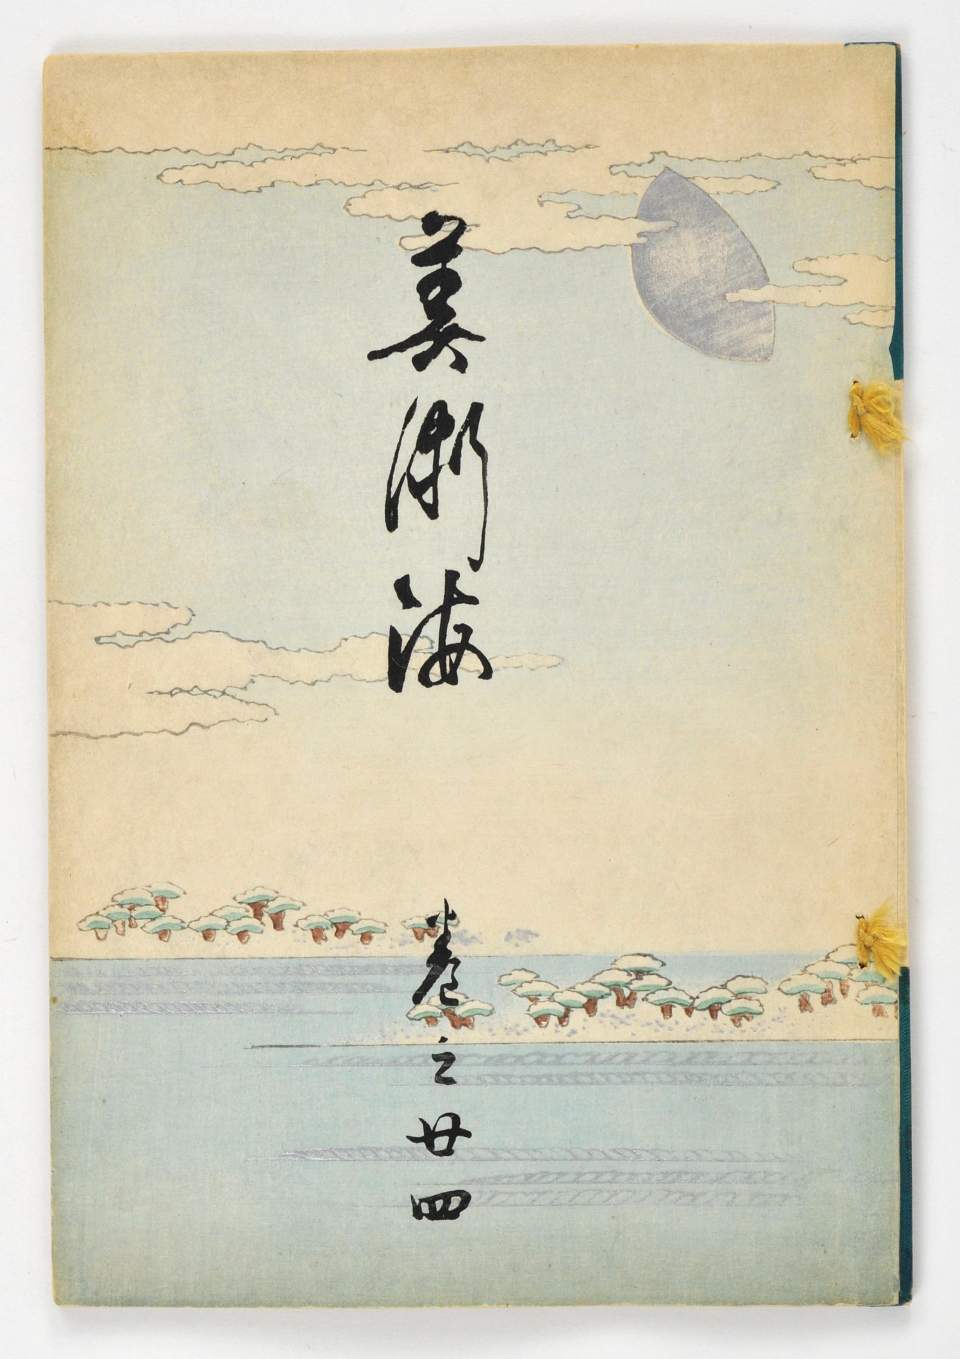 美術海
巻之廿四